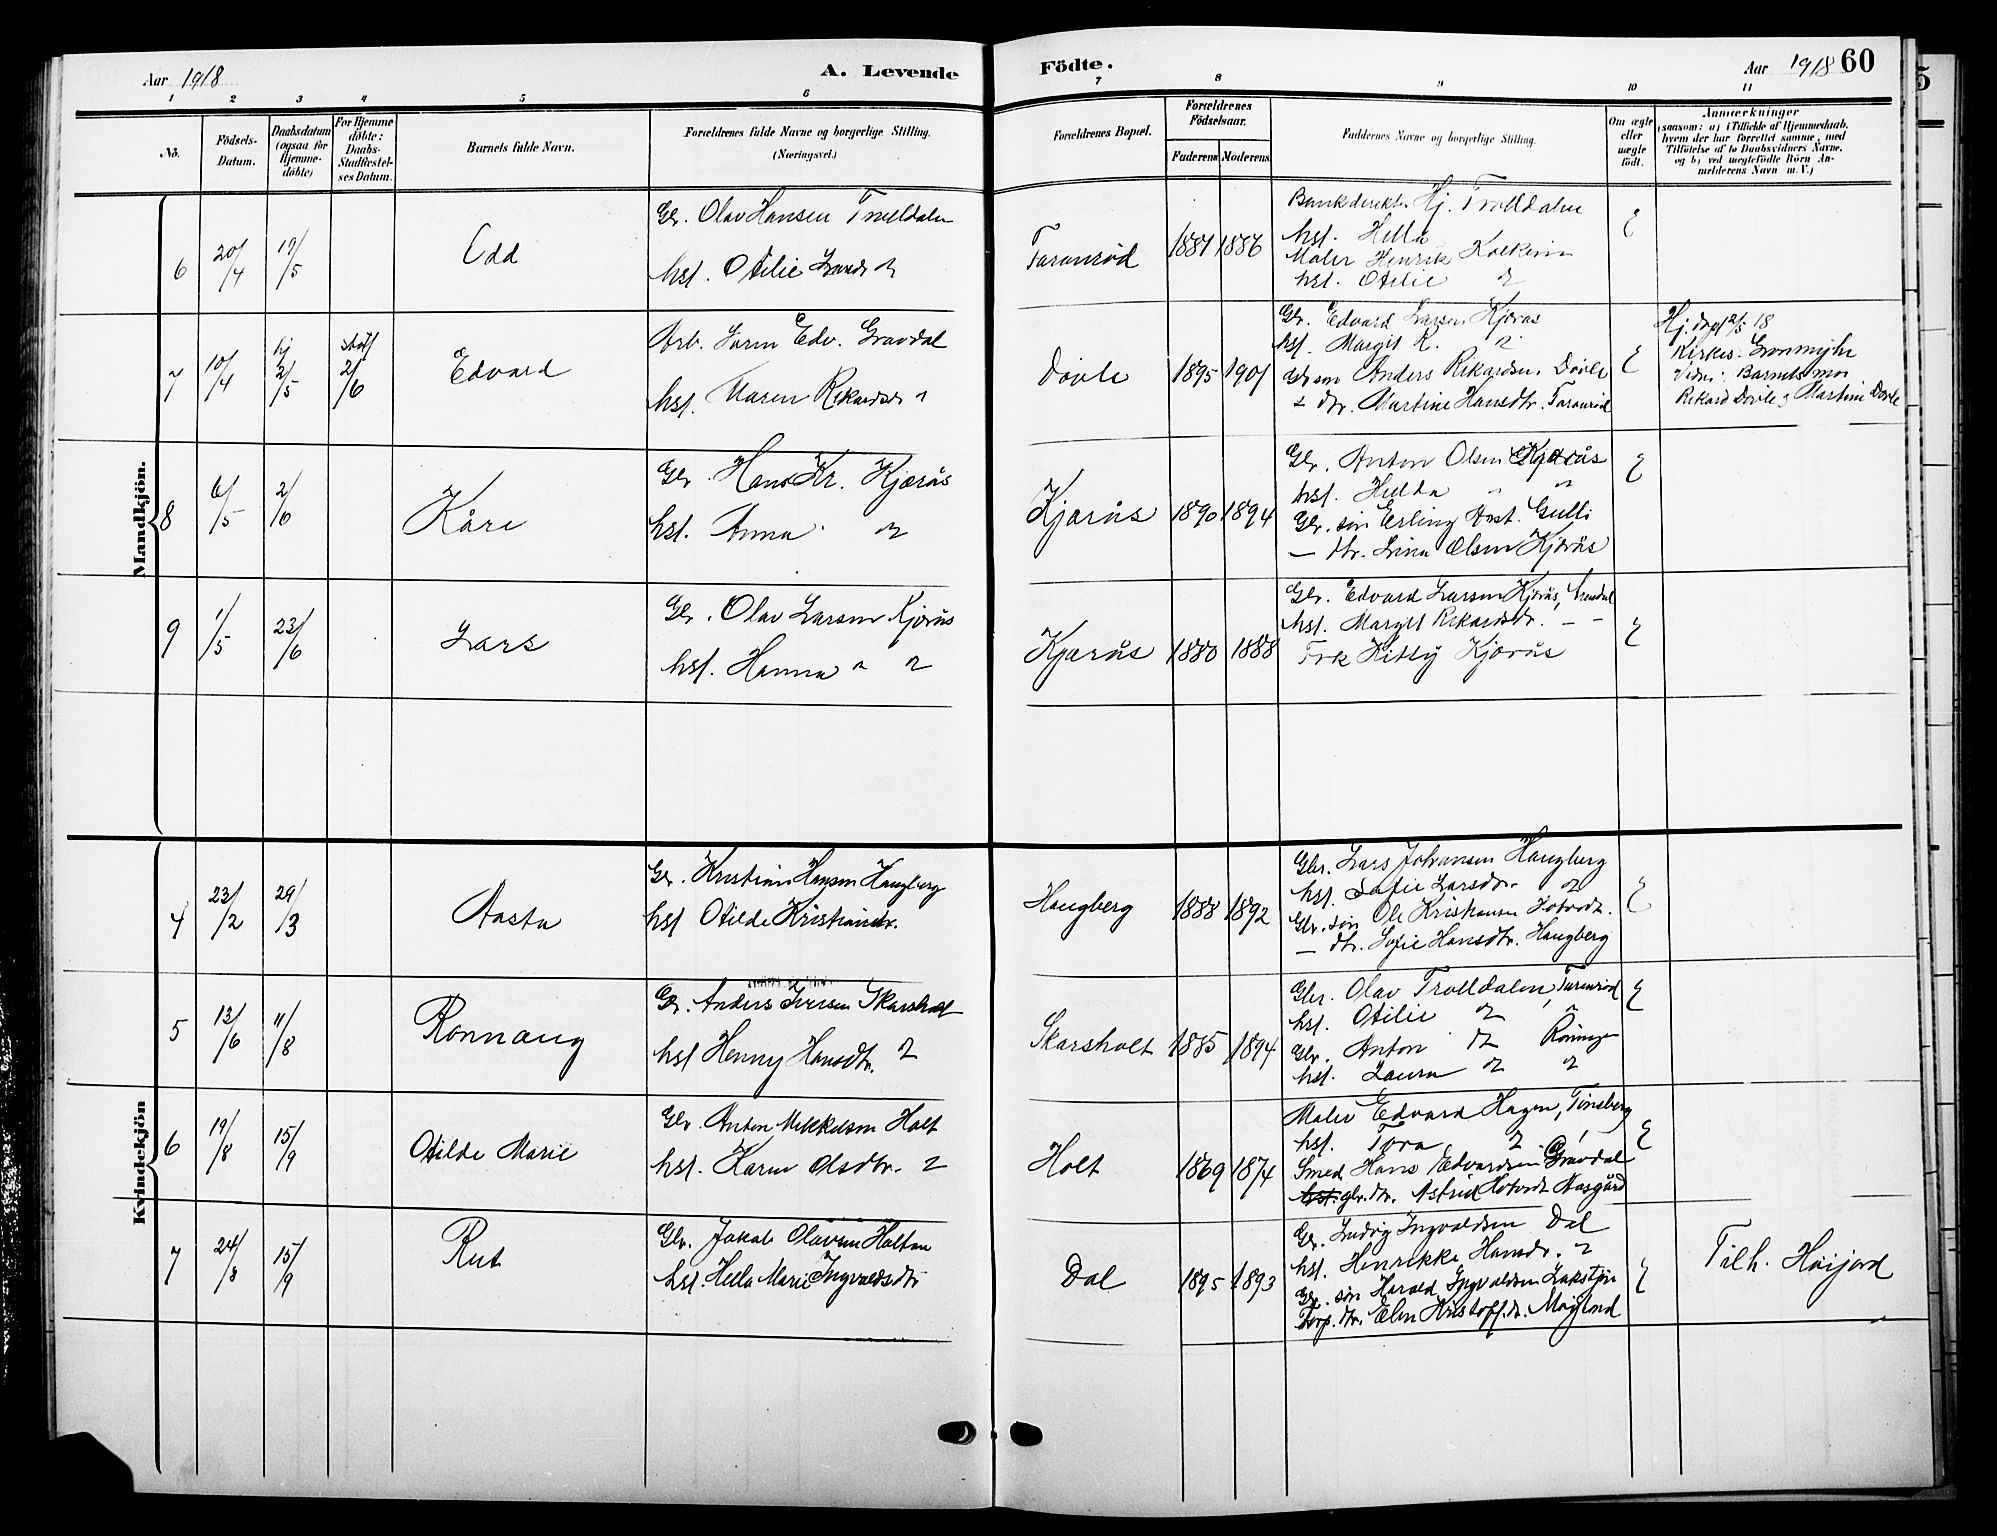 Aar 1918
A. Levende Födte.
Aar 1918 60
1 2 3 4 5 6 7 8 9 10 11
No.
Födsels-Datum.
Daabsdatum (ogsaa for Hjemme-döbte)
For Hjemme döbte: Daabs-Stadfæstel-ses Datum.
Barnets fulde Navn.
Forældrenes fulde Navne og borgerlige Stilling.
(Næringsvei.)
Forældrenes Bopæl.
Forældrenes Födselsaar.
Faderens Moderens
Faddernes Navne og borgerlige Stilling.
Om ægte eller uægte födt.
Anmærkninger
(saasom: a) i Tilfælde af Hjemmedaab,
hvem der har forrettet samme, med
Tilföielse af to Daabsvidners Navne,
og b) ved uægtefödte Börn An-
melderens Navn m. V.)
Mandkjön.
6 20/4 19/5 Odd
Gbr. Olav Hansen Trolldalen
hst. Otilie
Taranrød 1881 1886
Bankdirekt. Hj. Trolldalen
hst. Hella
Maler Henrik
hst. Otilie
E
7 10/4 hj 2/5 stadf 2/6 Edvard
Arb. Edv. Gravdal
hst. Maren Rikardsdr
Døvle 1895 1901
Gbr. Edvard Larsen Kjærås
hst. Margit R.
Gbr søn Anders Rikardsen. Døvle
+ dtr. Martine Hansdtr. Taranrød
E
Hj. døpt 2/5 18
Kirkes.
Vidner: Barnets mor
Rikard Døvle og Martine Døvle
8 6/5 2/6 Kåre
Gbr. Hans Kr. Kjærås
hst. Anna
Kjærås 1890 1894
Gbr. Anton Olsen Kjærås
hst. Hilda " "
Gbr. søn Erling Gulli
— dtr. Lina Olsen Kjærås
E
9 1/5 23/6 Lars
Gbr. Olav Larsen Kjærås
hst. Hanna "
Kjærås 1880 1888
Gbr. Edvard Larsen Kjærås,
hst. Margit Rikardsdr. — —
Frk Kitty Kjærås
E
Kvindekjön
4 23/2 29/3 Aasta
Gbr. Kristian Hansen Haugberg
hst Otilde Kristiansdr.
Haugberg 1888 1892
Gbr. Lars Johansen Haugberg
hst. Sofie Larsdr.
Gbr. søn Ole Kristiansen Hotvedt.
— dtr. Sofie Hansdtr. Haugberg
E
5 13/6 11/8 Ronnaug
Gbr. Anders Iversen Skarsholt
hst Henny Hansdtr.
Skarsholt 1885 1894
Gbr. Olav Trolldalen, Taranrød
hst. Otilie
Gbr. Anton
hst. Laura
E
6 19/8 15/9 Otilde Marie
Gbr. Anton Mikkelsen Holt
hst. Karen Olsdtr.
Holt 1869 1874
Maler Edvard Hagen, Tønsberg
hst. Tora
Smed Hans Edvardsen Gravdal
hst. gbr. dtr. Astrid Hotvedt Aasgård
E
7 24/8 15/9 Rut
Gbr. Jakob Olavsen Holtan
hst. Hella Marie Ingvaldsdtr
Dal 1895 1893
Gbr. Ludvig Ingvaldsen Dal
hst. Henrikke Hansdr.
Gbr. søn Harald Ingvaldsen
dtr. Elen Kristoff.dr.
E
Tilh. Høijord